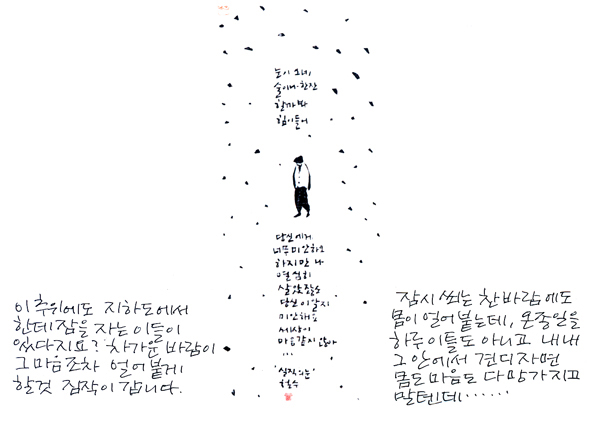 눈이 오네
술이나 한잔
할까봐
힘이들어
당신에게
너무 미안하오
하지만 나
열심히
살았잖소
당신이 알지
미안하오
세상이
마음같지 않아
...
이 추위에도 지하도에서
한데잠을 자는 이들이
있다지요? 차가운 바람이
그 마음조차 얼어붙게
할것 짐작이 갑니다.
잠시 쐬는 찬바람에도
몸이 얼어붙는데, 온종일을
하루이틀도 아니고 내내
그 안에서 견디자면
몸도 마음도 다 망가지고
말텐데……